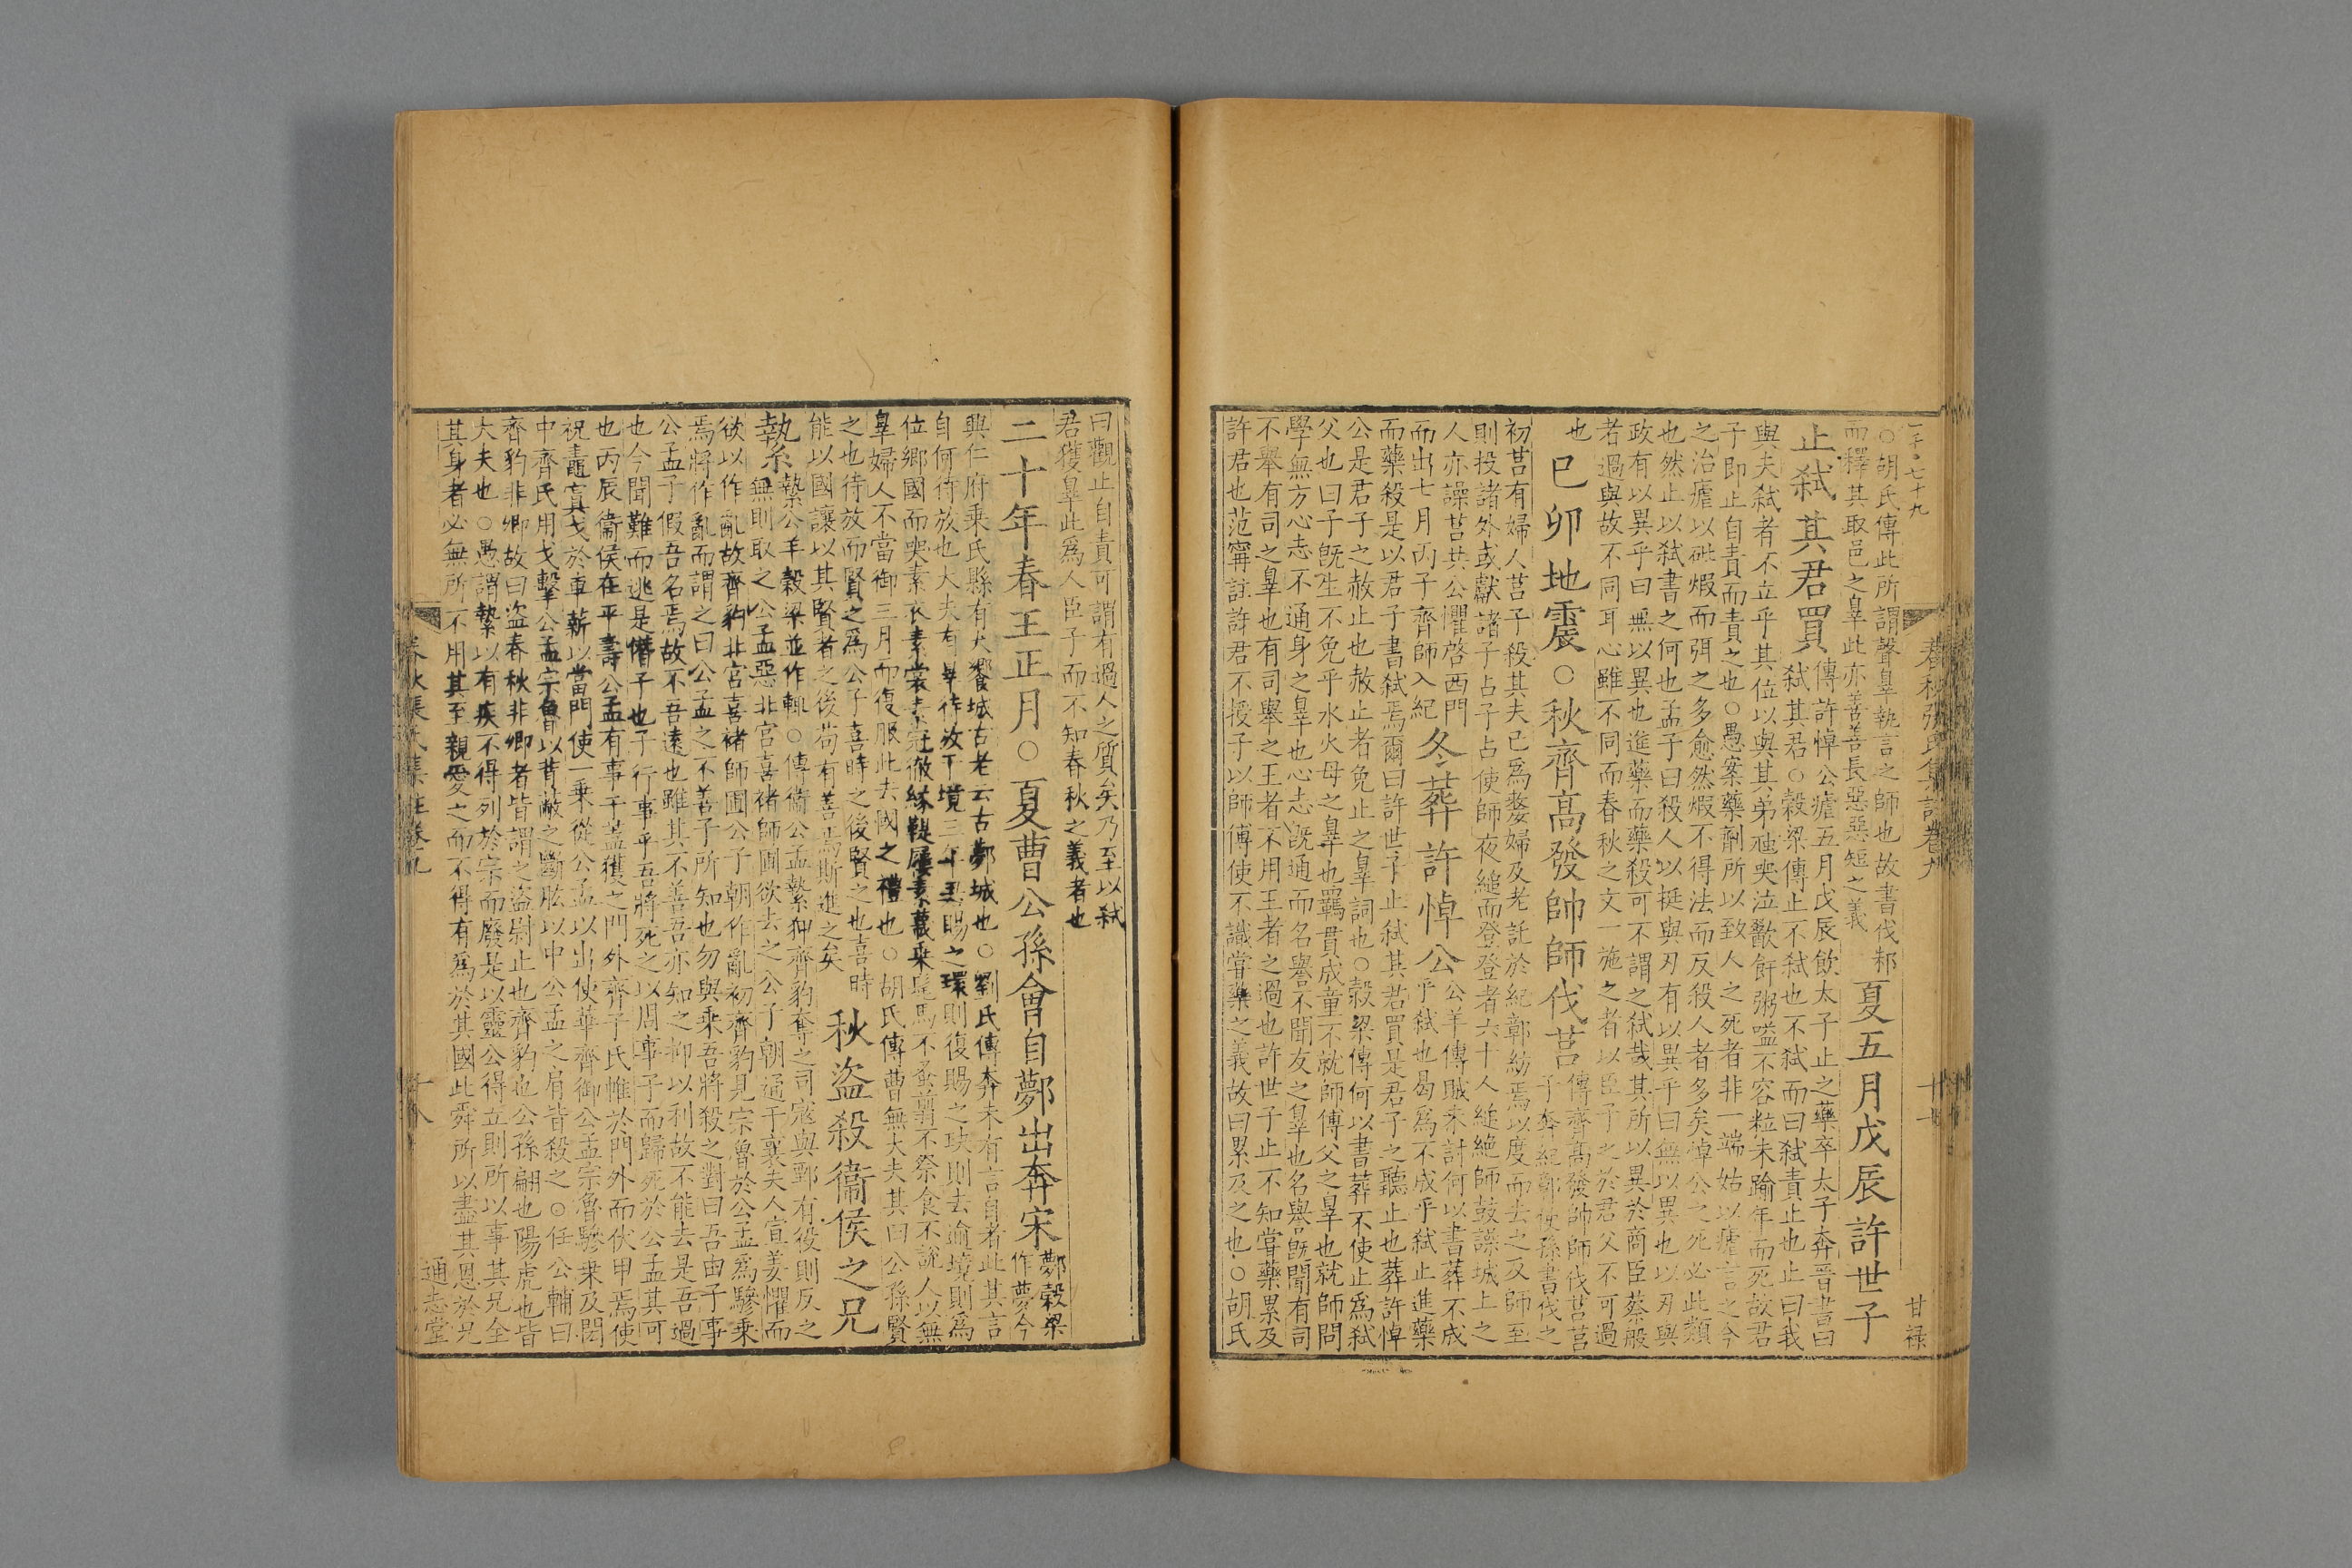 一千〇七十九
春秋張氏集註卷九
十七
甘禄
○胡氏傳此所謂聲辠執言之師也故書伐邾
而釋其取邑之辠此亦善善長惡惡短之義
夏五月戊辰許世子
止弑其君買
傳許悼公瘧五月戊辰飲太子止之藥卒太子奔晉書曰
弑其君○穀梁傳止不弑也不弑而曰弑責止也止曰我
與夫弑者不立乎其位以與其弟虺哭泣歠飦粥嗌不容粒未踰年而死故君
子即止自責而責之也○愚案藥劑所以致人之死者非一端姑以瘧言之今
之治瘧以砒煆而弭之多愈然煆不得法而反殺人者多矣悼公之死必此類
也然止以弑書之何也孟子曰殺人以挺與刃有以異乎曰無以異也以刃與
政有以異乎曰無以異也進藥而藥殺可不謂之弑哉其所以異於商臣蔡般
者過與故不同耳心雖不同而春秋之文一施之者以臣子之於君父不可過
也
己卯地震○秋齊高發帥師伐莒
傳齊高發帥師伐莒莒
子奔紀鄣使孫書伐之
初莒有婦人莒子殺其夫已爲嫠婦及老託於紀鄣紡焉以度而去之及師至
則投諸外或獻諸子占子占使師夜縋而登登者六十人縋絶師鼓譟城上之
人亦譟莒共公懼啓西門
而出七月丙子齊師入紀
冬葬許悼公
公羊傳賊未討何以書葬不成
乎弑也曷爲不成乎弑止進藥
而藥殺是以君子書弑焉爾曰許世子止弑其君買是君子之聽止也葬許悼
公是君子之赦止也赦止者免止之辠詞也○穀梁傳何以書葬不使止爲弑
父也曰子旣生不免乎水火母之辠也羈貫成童不就師傅父之辠也就師問
學無方心志不通身之辠也心志旣通而名譽不聞友之辠也名譽旣聞有司
不舉有司之辠也有司舉之王者不用王者之過也許世子止不知嘗藥累及
許君也范甯註許君不授子以師傅使不識嘗藥之義故曰累及之也○胡氏
曰觀止自責可謂有過人之質矣乃至以弑
君獲辠此爲人臣子而不知春秋之義者也
二十年春王正月○夏曹公孫會自鄸出奔宋
鄸穀梁
作夢今
興仁府乗氏縣有大饗城古老云古鄸城也○劉氏傳奔未有言自者此其言
自何待放也大夫有辠待放于境三年君賜之環則復賜之玦則去逾境則爲
位鄉國而哭素衣素裳素冠徹緣鞮屨素蔑乗髦馬不蚤翦不祭食不說人以無
辠婦人不當御三月而復服此去國之禮也○胡氏傳曹無大夫其曰公孫賢
之也待放而賢之爲公子喜時之後賢之也喜時
能以國讓以其賢者之後苟有善焉斯進之矣
秋盜殺衞侯之兄
縶
縶公羊穀梁並作輒○傳衞公孟縶狎齊豹奪之司寇與鄄有役則反之
無則取之公孟惡北宮喜褚師圃欲去之公子朝通于襄夫人宣姜懼而
欲以作亂故齊豹北宮喜褚師圃公子朝作亂初齊豹見宗魯於公孟爲驂乗
焉將作亂而謂之曰公孟之不善子所知也勿與乗吾將殺之對曰吾由子事
公孟子假吾名焉故不吾遠也雖其不善吾亦知之抑以利故不能去是吾過
也今聞難而逃是僭子也子行事乎吾將死之以周事子而歸死於公孟其可
也丙辰衞侯在平壽公孟有事于蓋獲之門外齊子氏帷於門外而伏甲焉使
祝鼃寘戈於車薪以當門使一乗從公孟以出使華齊御公孟宗魯驂乗及閎
中齊氏用戈擊公孟宗魯以背蔽之斷肱以中公孟之肩皆殺之○任公輔曰
齊豹非卿故曰盜春秋非卿者皆謂之盜尉止也齊豹也公孫翩也陽虎也皆
大夫也○愚謂縶以有疾不得列於宗而廢是以靈公得立則所以事其兄全
其身者必無所不用其至親愛之而不得有爲於其國此舜所以盡其恩於兄
春秋張氏集註卷九
十八
通志堂